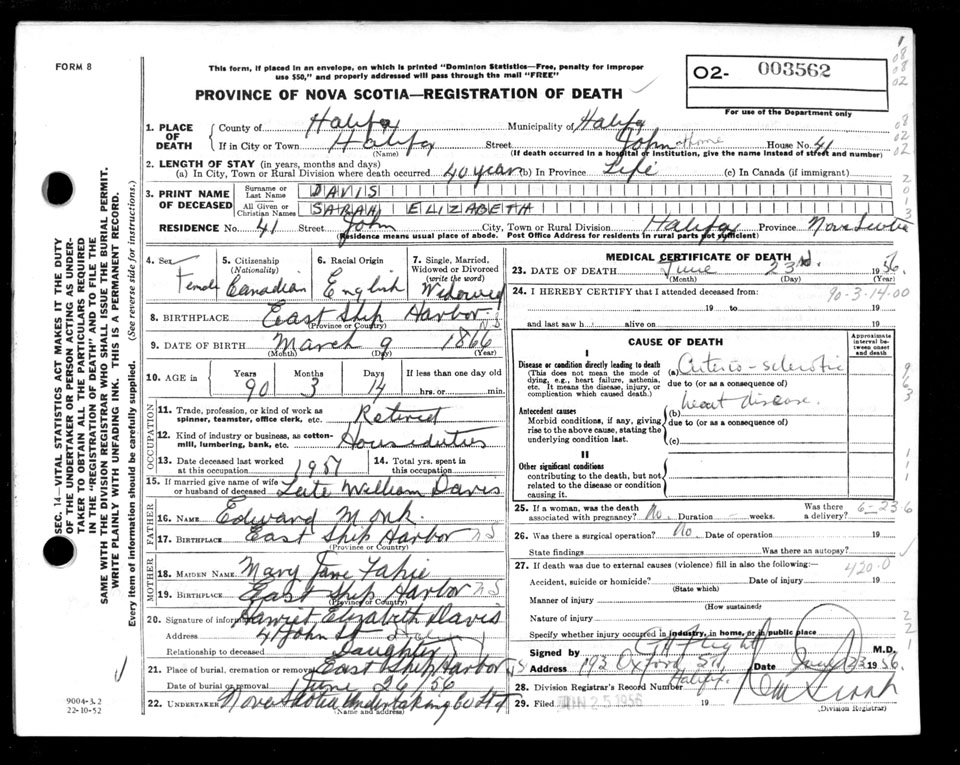 FORM 8
This form, if placed in an envelope, on which is printed "Dominion Statistics—Free, penalty for improper
use $50," and properly addressed will pass through the mail "FREE"
O2- 003562
For use of the Department only
PROVINCE OF NOVA SCOTIA—REGISTRATION OF DEATH
1. PLACE OF DEATH { County of Halifax Municipality of Halifax
If in City or Town Halifax Street John at home House No. 41
(Name) (If death occurred in a hospital or institution, give the name instead of street and number)
2. LENGTH OF STAY (in years, months and days)
(a) In City, Town or Rural Division where death occurred 40 years (b) In Province Life (c) In Canada (if immigrant)
3. PRINT NAME OF DECEASED { Surname or Last Name DAVIS
All Given or Christian Names SARAH ELIZABETH
RESIDENCE No. 41 Street John City, Town or Rural Division Halifax Province Nova Scotia
(Residence means usual place of abode. Post Office Address for residents in rural parts not sufficient)
4. Sex Female
5. Citizenship (Nationality) Canadian
6. Racial Origin English
7. Single, Married, Widowed or Divorced (write the word) Widowed
8. BIRTHPLACE East Ship Harbor N.S
(Province or Country)
9. DATE OF BIRTH March 9 1866
(Month) (Day) (Year)
10. AGE in Years 90 Months 3 Days 14 If less than one day old
hrs. or min.
OCCUPATION
11. Trade, profession, or kind of work as
spinner, teamster, office clerk, etc. Retired
12. Kind of industry or business, as cotton-
mill, lumbering, bank, etc. House duties
13. Date deceased last worked
at this occupation 1951
14. Total yrs. spent in
this occupation
15. If married give name of wife
or husband of deceased Late William Davis
FATHER
16. NAME Edward Monk
17. BIRTHPLACE East Ship Harbor N S
(Province or Country)
MOTHER
18. MAIDEN NAME Mary Jane Fahie
19. BIRTHPLACE East Ship Harbor N S
(Province or Country)
20. Signature of informant Harriet Elizabeth Davis
Address 41 John St
Relationship to deceased Daughter
21. Place of burial, cremation or removal East Ship Harbor N S
Date of burial or removal June 26 56
22. UNDERTAKER Nova Scotia Undertaking Co Ltd
(Name and address)
MEDICAL CERTIFICATE OF DEATH
23. DATE OF DEATH June 23rd 1956.
(Month) (Day) (Year)
24. I HEREBY CERTIFY that I attended deceased from: 90-3-14-00
19 to 19
and last saw h alive on 19
CAUSE OF DEATH
Approximate interval between onset and death
I
Disease or condition directly leading to death
(This does not mean the mode of
dying, e.g., heart failure, asthenia,
etc. It means the disease, injury, or
complication which caused death.)
(a) Arterio-sclerotic
due to (or as a consequence of)
Antecedent causes
Morbid conditions, if any, giving
rise to the above cause, stating the
underlying condition last.
(b) heart disease.
due to (or as a consequence of)
(c)
II
Other significant conditions
contributing to the death, but not
related to the disease or condition
causing it.
25. If a woman, was the death
associated with pregnancy? No. Duration - weeks.
Was there
a delivery? 6-23 6
26. Was there a surgical operation? No. Date of operation 19
State findings Was there an autopsy?
27. If death was due to external causes (violence) fill in also the following: 420.0
Accident, suicide or homicide? Date of injury 19
(State which)
Manner of injury
(How sustained)
Nature of injury
Specify whether injury occurred in industry, in home, or in public place
Signed by M.D.
Address 193 Oxford St Date 23 1956.
Halifax
28. Division Registrar's Record Number
29. Filed JUN 25 1956 19
(Division Registrar)
SEC. 14—VITAL STATISTICS ACT MAKES IT THE DUTY
OF THE UNDERTAKER OR PERSON ACTING AS UNDER-
TAKER TO OBTAIN ALL THE PARTICULARS REQUIRED
IN THE "REGISTRATION OF DEATH" AND TO FILE THE
SAME WITH THE DIVISION REGISTRAR WHO SHALL ISSUE THE BURIAL PERMIT.
WRITE PLAINLY WITH UNFADING INK. THIS IS A PERMANENT RECORD.
Every item of information should be carefully supplied. (See reverse side for instructions.)
9004-3.2
22-10-52